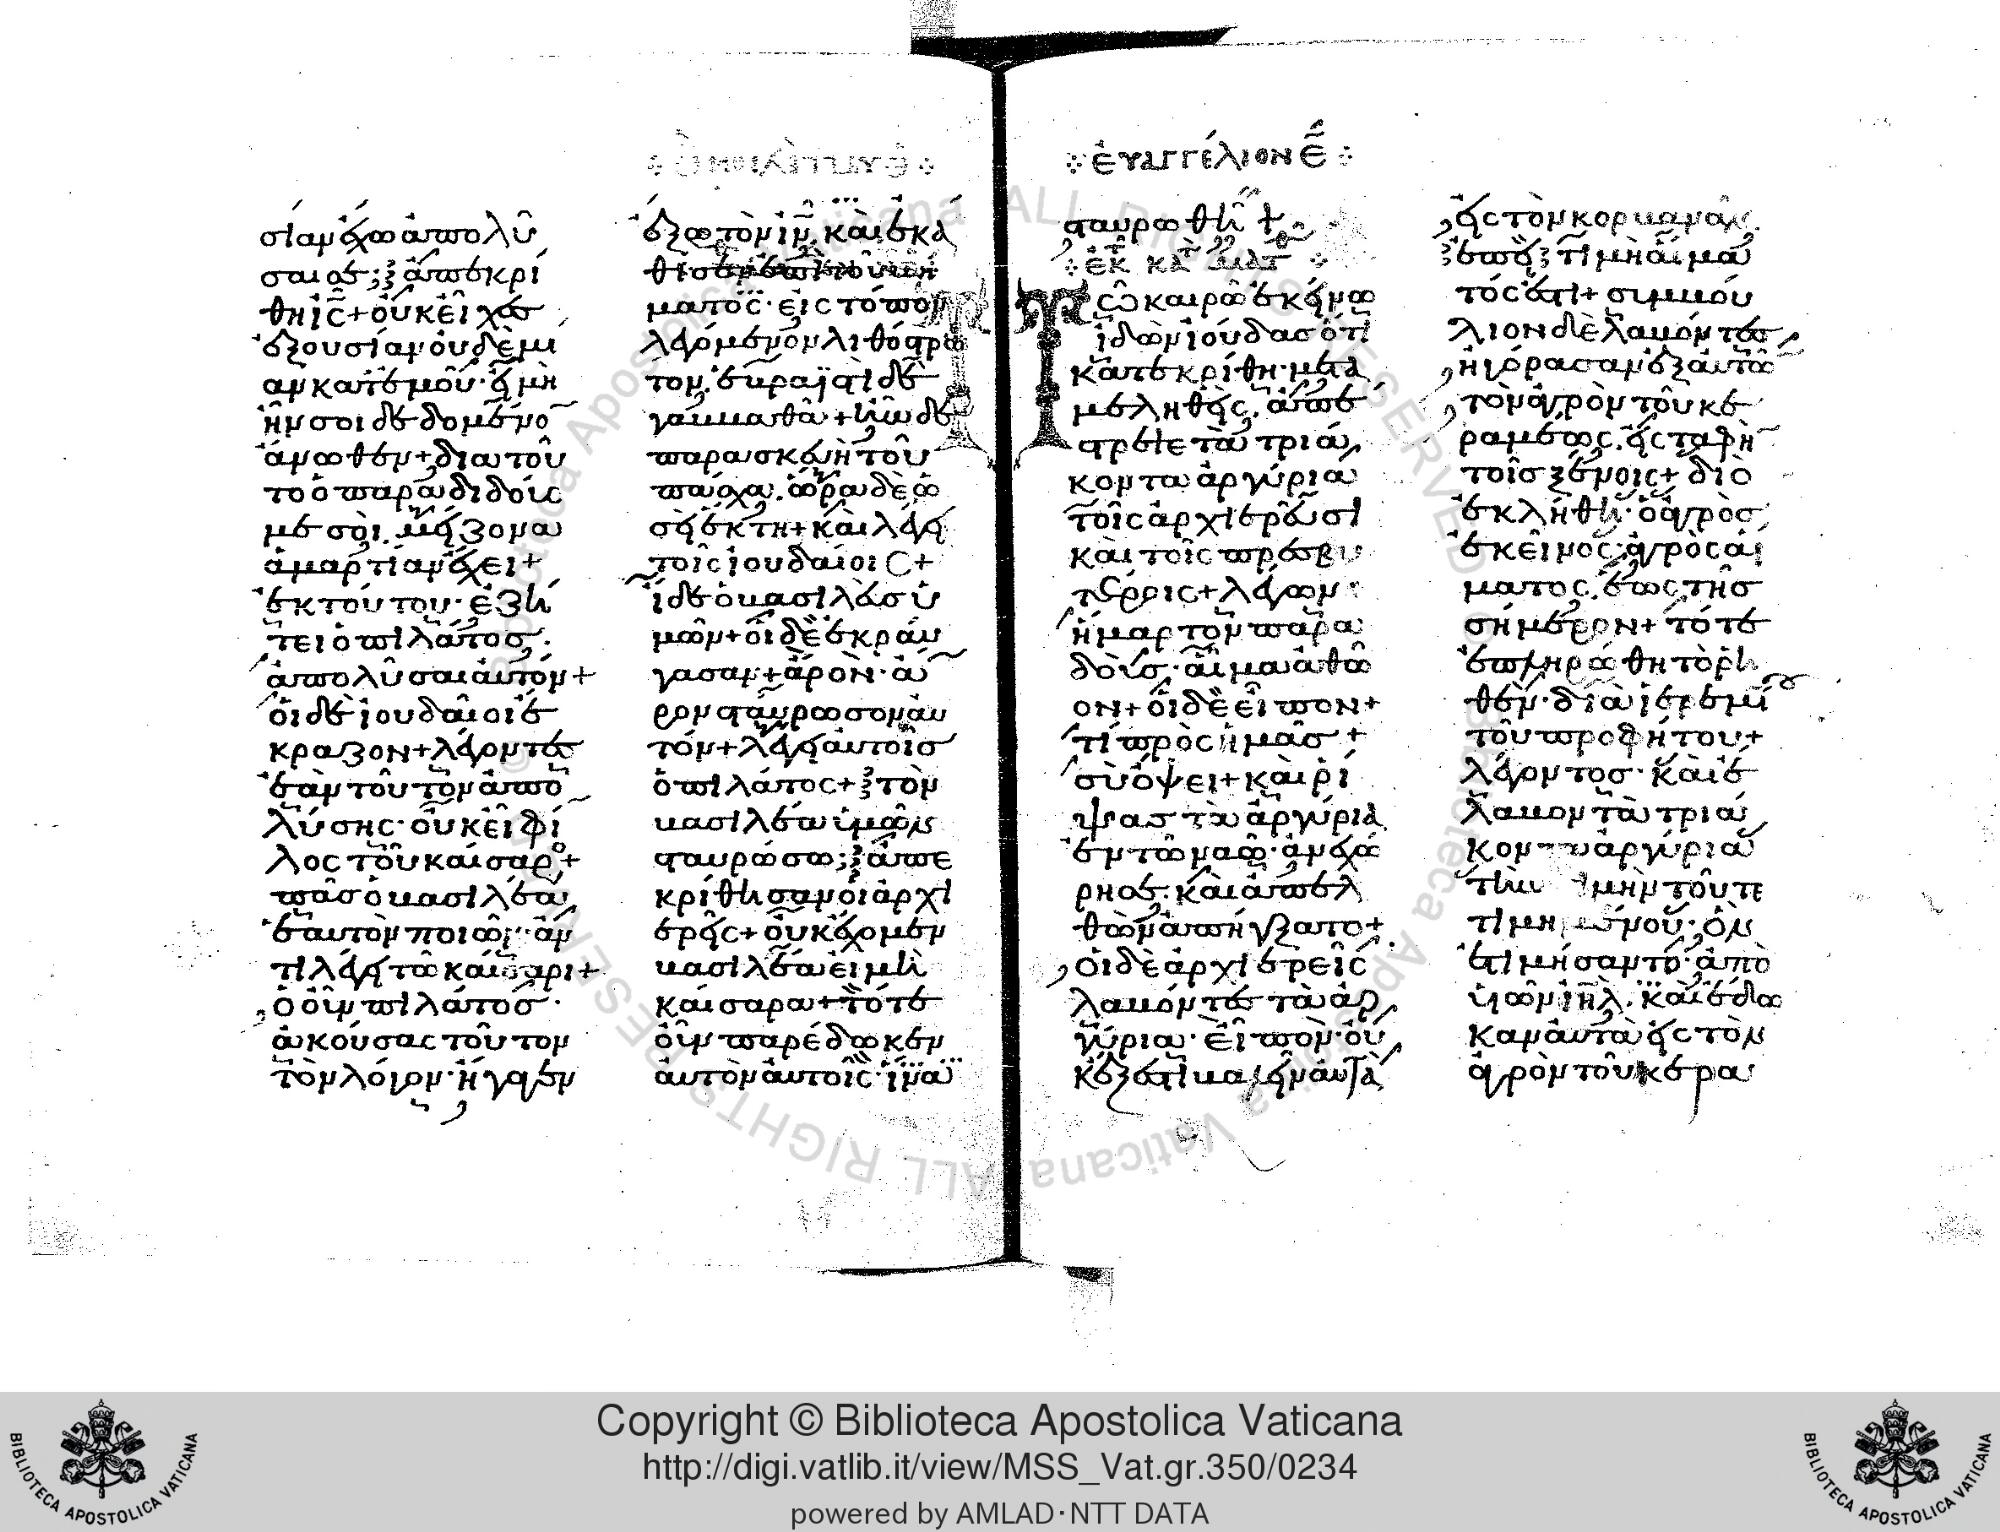 σίαν ἔχω ἀπολῦ
σαι σε; ἀπεκρί
θη ἰς+ οὐκ εἶχες
ἐξουσίαν οὐδεμι
αν κατ' ἐμοῦ· εἰ μὴ
ἦν σοι δεδομένο
ἄνωθεν+ διὰ τοῦ
το ὁ παραδιδούς
με σοὶ. μείζονα
ἁμαρτίαν ἔχει+
ἐκ τούτου· ἐζή
τει ὁ πιλάτος.
ἀπολῦσαι αὐτόν+
οἱ δὲ ἰουδαῖοι ἔ
κραζον+ λέγοντες
ἐὰν τοῦτον ἀπο
λύσης· οὐκ εἶ φί
λος τοῦ καίσαρο+
πᾶς ὁ βασιλέα
ἑαυτὸν ποιῶν· ἀν
τιλέγει τῶ καίσαρι+
ὁ οὖν πιλάτος·
ἀκούσας τοῦτον
τὸν λόγον· ἤγαγεν
ἔξω τὸν ἰν, καὶ ἐκά
θισεν ἐπὶ τοῦ βή
ματος· εἰς τόπον
λεγόμενον λιθόστρω
τον, ἑβραϊστὶ δὲ
γαββαθᾶ+ ἦν δὲ
παρασκευὴ τοῦ
πάσχα. ὥρα δὲ ὡ
σεὶ ἕκτη+ καὶ λέγει
τοῖς ἰουδαίοις+
ἴδε ὁ βασιλεὺς ὑ
μῶν+ οἱ δὲ ἐκραύ
γασαν+ ἆρον· ἆ
ρον σταύρωσον αὐ
τόν+ λέγει αὐτοῖς
ὁ πιλάτος+ τὸν
βασιλέα ὑμῶν
σταυρώσω; ἀπε
κρίθησαν οἱ ἀρχι
ερεῖς+ οὐκ ἔχομεν
βασιλέα εἰ μὴ
καίσαρα+ τότε
οὖν παρέδωκεν
αὐτὸν αὐτοῖς· ἵνα
⁘ ἐυαγγέλιον Ε ⁘
σταυρωθῆ
⁘ ἐκ κατ ματ ⁘
Τῶ καιρῶ ἐκείνω
ἰδὼν ἰούδας ὅτι
κατεκρίθη· μετα
μεληθεὶς, ἀπέ
στρεψε τὰ τριά
κοντα ἀργύρια
τοῖς ἀρχιερεῦσι
καὶ τοῖς πρεσβυ
τέροις+ λέγων·
ἥμαρτον παρα
δοὺς· αἷμα ἀθῶ
ον+ οἱ δὲ εἶπον+
τί πρὸς ἡμᾶς+
σὺ ὄψει+ καὶ ῥί
ψας τὰ ἀργύρια
ἐν τῶ ναῶ· ἀνεχώ
ρησε· καὶ ἀπελ
θὼν ἀπήγξατο+
οἱ δὲ ἀρχιερεῖς
λαβόντες τὰ ἀρ
γύρια· εἶπον· οὐ
κ ἔξεστι βαλεῖν αὐτὰ
εἰς τὸν κορβανᾶν.
ἐπεὶ τιμὴ αἵμα
τός ἐστι+ συμβού
λιον δὲ λαβόντες,
ἠγόρασαν ἐξ αὐτῶ
τὸν ἀγρὸν τοῦ κε
ραμέως, εἰς ταφὴ
τοῖς ξένοις+ διὸ
ἐκλήθη· ὁ ἀγρὸς
ἐκεῖνος· ἀγρὸς αἵ
ματος, ἕως τῆς
σήμερον+ τότε
ἐπληρώθη τὸ ῥη
θὲν· διὰ ἱερεμί
τοῦ προφήτου+
λέγοντος· καὶ ἔ
λαβον τὰ τριά
κοντα ἀργύρια
τὴν τιμὴν τοῦ τε
τιμημένου· ὃν
ἐτιμήσαντο· ἀπὸ
υἱῶν ἰηλ. καὶ ἔδω
καν αὐτὰ εἰς τὸν
ἀγρὸν τοῦ κερα
ALL RIGHTS RESERVED © Biblioteca Apostolica Vaticana ALL RIGHTS RESERVED © Biblioteca Apostolica Vaticana
Copyright © Biblioteca Apostolica Vaticana
http://digi.vatlib.it/view/MSS_Vat.gr.350/0234
powered by AMLAD·NTT DATA
BIBLIOTECA APOSTOLICA VATICANA
BIBLIOTECA APOSTOLICA VATICANA